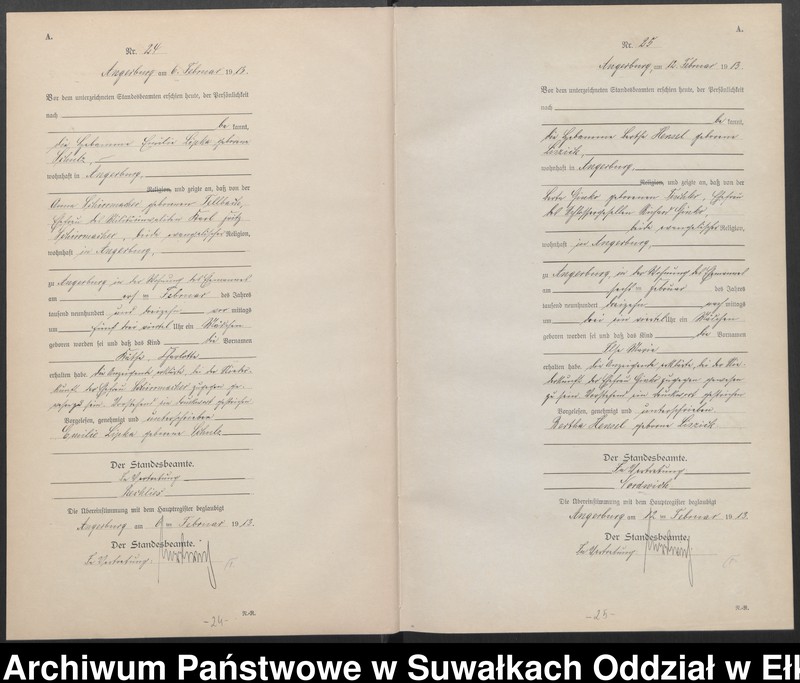 A.
Nr. 24
Angerburg am 6. Februar 1913.
Vor dem unterzeichneten Standesbeamten erschien heute, der Persönlichkeit
nach
be kannt,
die Hebamme Emilie Lipka geborene
Schulz,
wohnhaft in Angerburg,
Religion, und zeigte an, daß von der
Anna Schirrmacher geborenen
Ehefrau des Karl Fritz
Schirrmacher, beide evangelischer Religion,
wohnhaft in Angerburg,
zu Angerburg in der Wohnung des Ehemannes
am ersten Februar des Jahres
tausend neunhundert und dreizehn vor mittags
um fünf drei viertel Uhr ein Mädchen
geboren worden sei und daß das Kind die Vornamen
Käthe Charlotte
erhalten habe. Die Anzeigende erklärte, bei der Nieder-
kunft der Ehefrau Schirrmacher zugegen ge-
wesen zu sein. Vorstehend ein Druckwort gestrichen
Vorgelesen, genehmigt und unterschrieben
Emilie Lipka geborene Schulz
Der Standesbeamte.
In Vertretung
Die Übereinstimmung mit dem Hauptregister beglaubigt
Angerburg am 6ten Februar 1913.
Der Standesbeamte.
In Vertretung.
-24-
N.-R.
A.
Nr. 25
Angerburg, am 12. Februar 1913.
Vor dem unterzeichneten Standesbeamten erschien heute, der Persönlichkeit
nach
be kannt,
die Hebamme Bertha Hensel geborene
wohnhaft in Angerburg,
Religion, und zeigte an, daß von der
geborenen Ehefrau
des Schlossergesellen
beide evangelischer Religion,
wohnhaft in Angerburg,
zu Angerburg, in der Wohnung des Ehemannes
am sechsten Februar des Jahres
tausend neunhundert dreizehn nach mittags
um drei ein viertel Uhr ein Mädchen
geboren worden sei und daß das Kind die Vornamen
Marie
erhalten habe. Die Anzeigende erklärte, bei der Nie-
derkunft der Ehefrau zugegen gewesen
zu sein. Vorstehend ein Druckwort gestrichen
Vorgelesen, genehmigt und unterschrieben
Bertha Hensel geborene
Der Standesbeamte.
In Vertretung
Die Übereinstimmung mit dem Hauptregister beglaubigt
Angerburg am 12ten Februar 1913.
Der Standesbeamte.
In Vertretung
-25-
N.-R.
Archiwum Państwowe w Suwałkach Oddział w Ełk